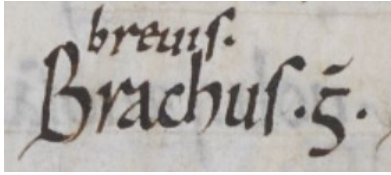 breuis.
Brachus. g̃.